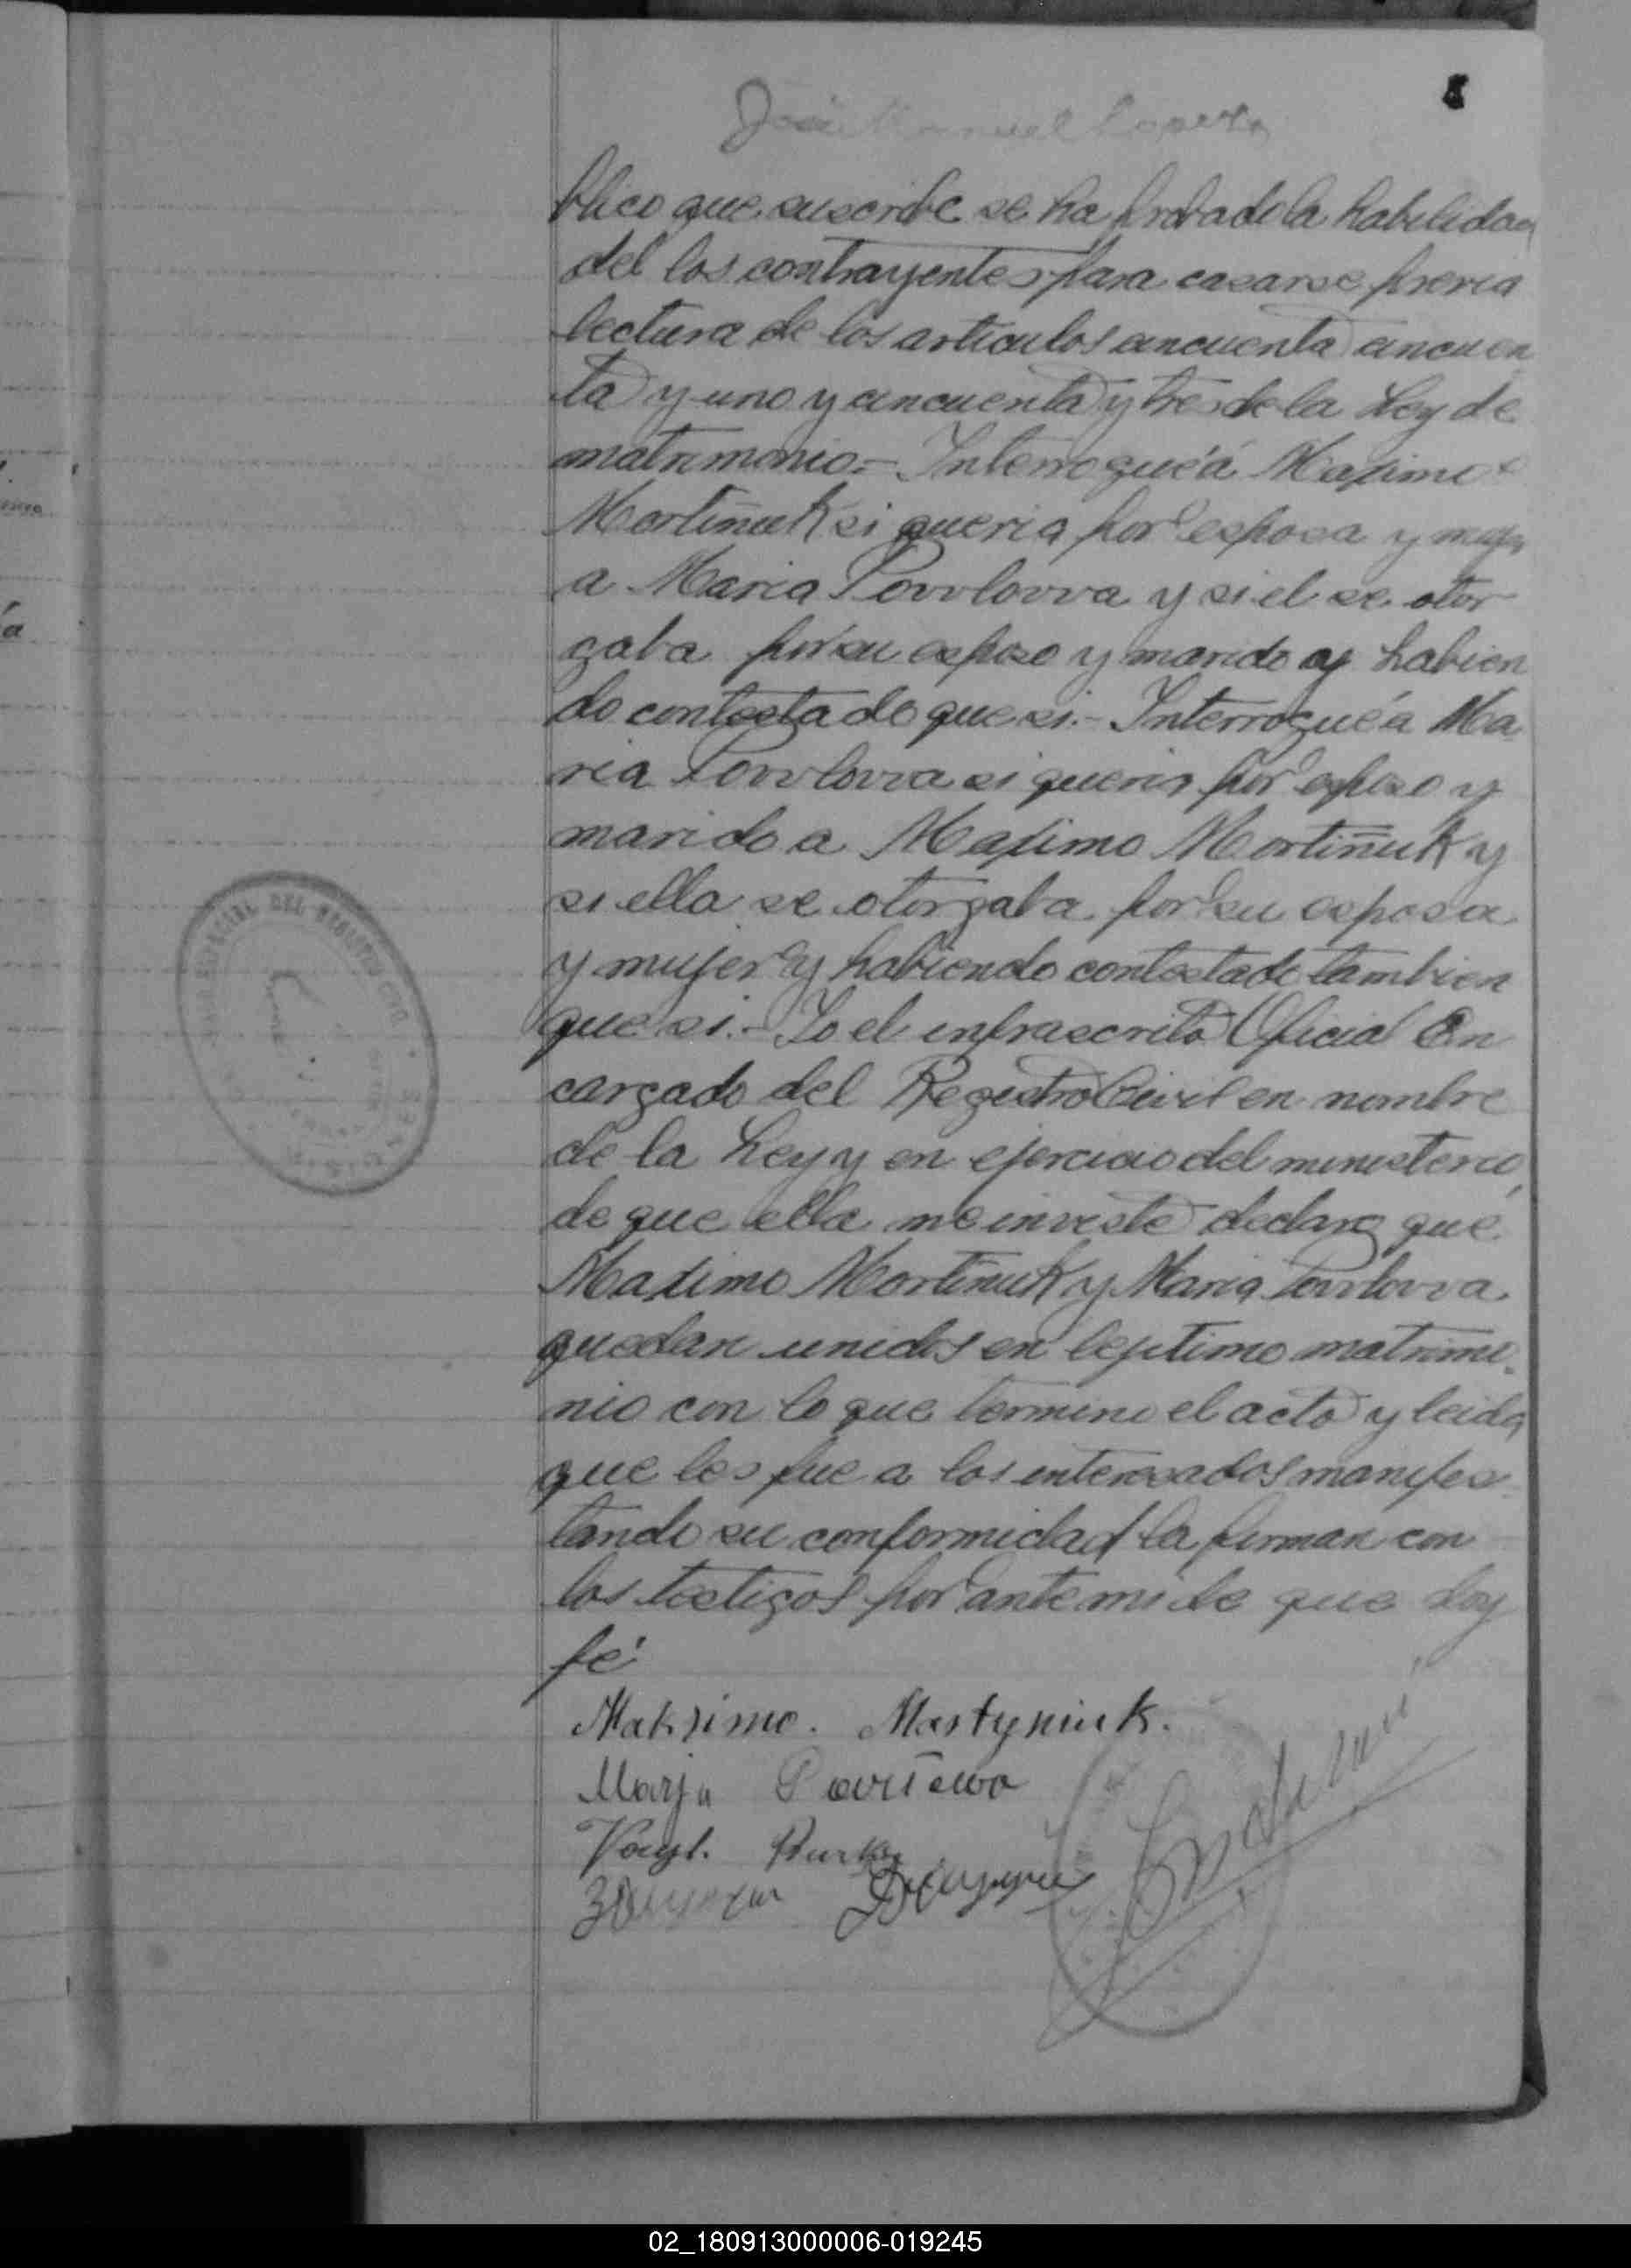 8
José Manuel
blico que suscribe se ha probado la habilidad
del los contrayentes para casarse previa
lectura de los articulos cincuenta cincuen
ta y uno y cincuenta y tres de la Ley de
matrimonio.= Interrogué á Maximo
Mortiñuk si queria por esposa y mujer
a Maria Povvlovva y si el se otor
gaba por su esposo y marido y habien
do contestado que si.- Interrogué a Ma
ria Povvlovva si queria por esposo y
marido a Maximo Mortiñuk y
si ella se otorgaba por su esposa
y mujer y habiendo contestado tambien
que si.- Yo el infrascrito Oficial En
cargado del Registro Civil en nombre
de la Ley y en ejercicio del ministerio
de que ella me inviste declaro que
Maximo Mortiñuk y Maria Povvlovva
quedan unidos en lejitimo matrimo-
nio con lo que termino el acto y leida
que les fue a los interesados manifes-
tando su conformidad la firman con
los testigos por ante mi de que doy
fé
Maksimo. Martyniuk.
Marja
DEL REGISTRO CIVIL
02_180913000006-019245